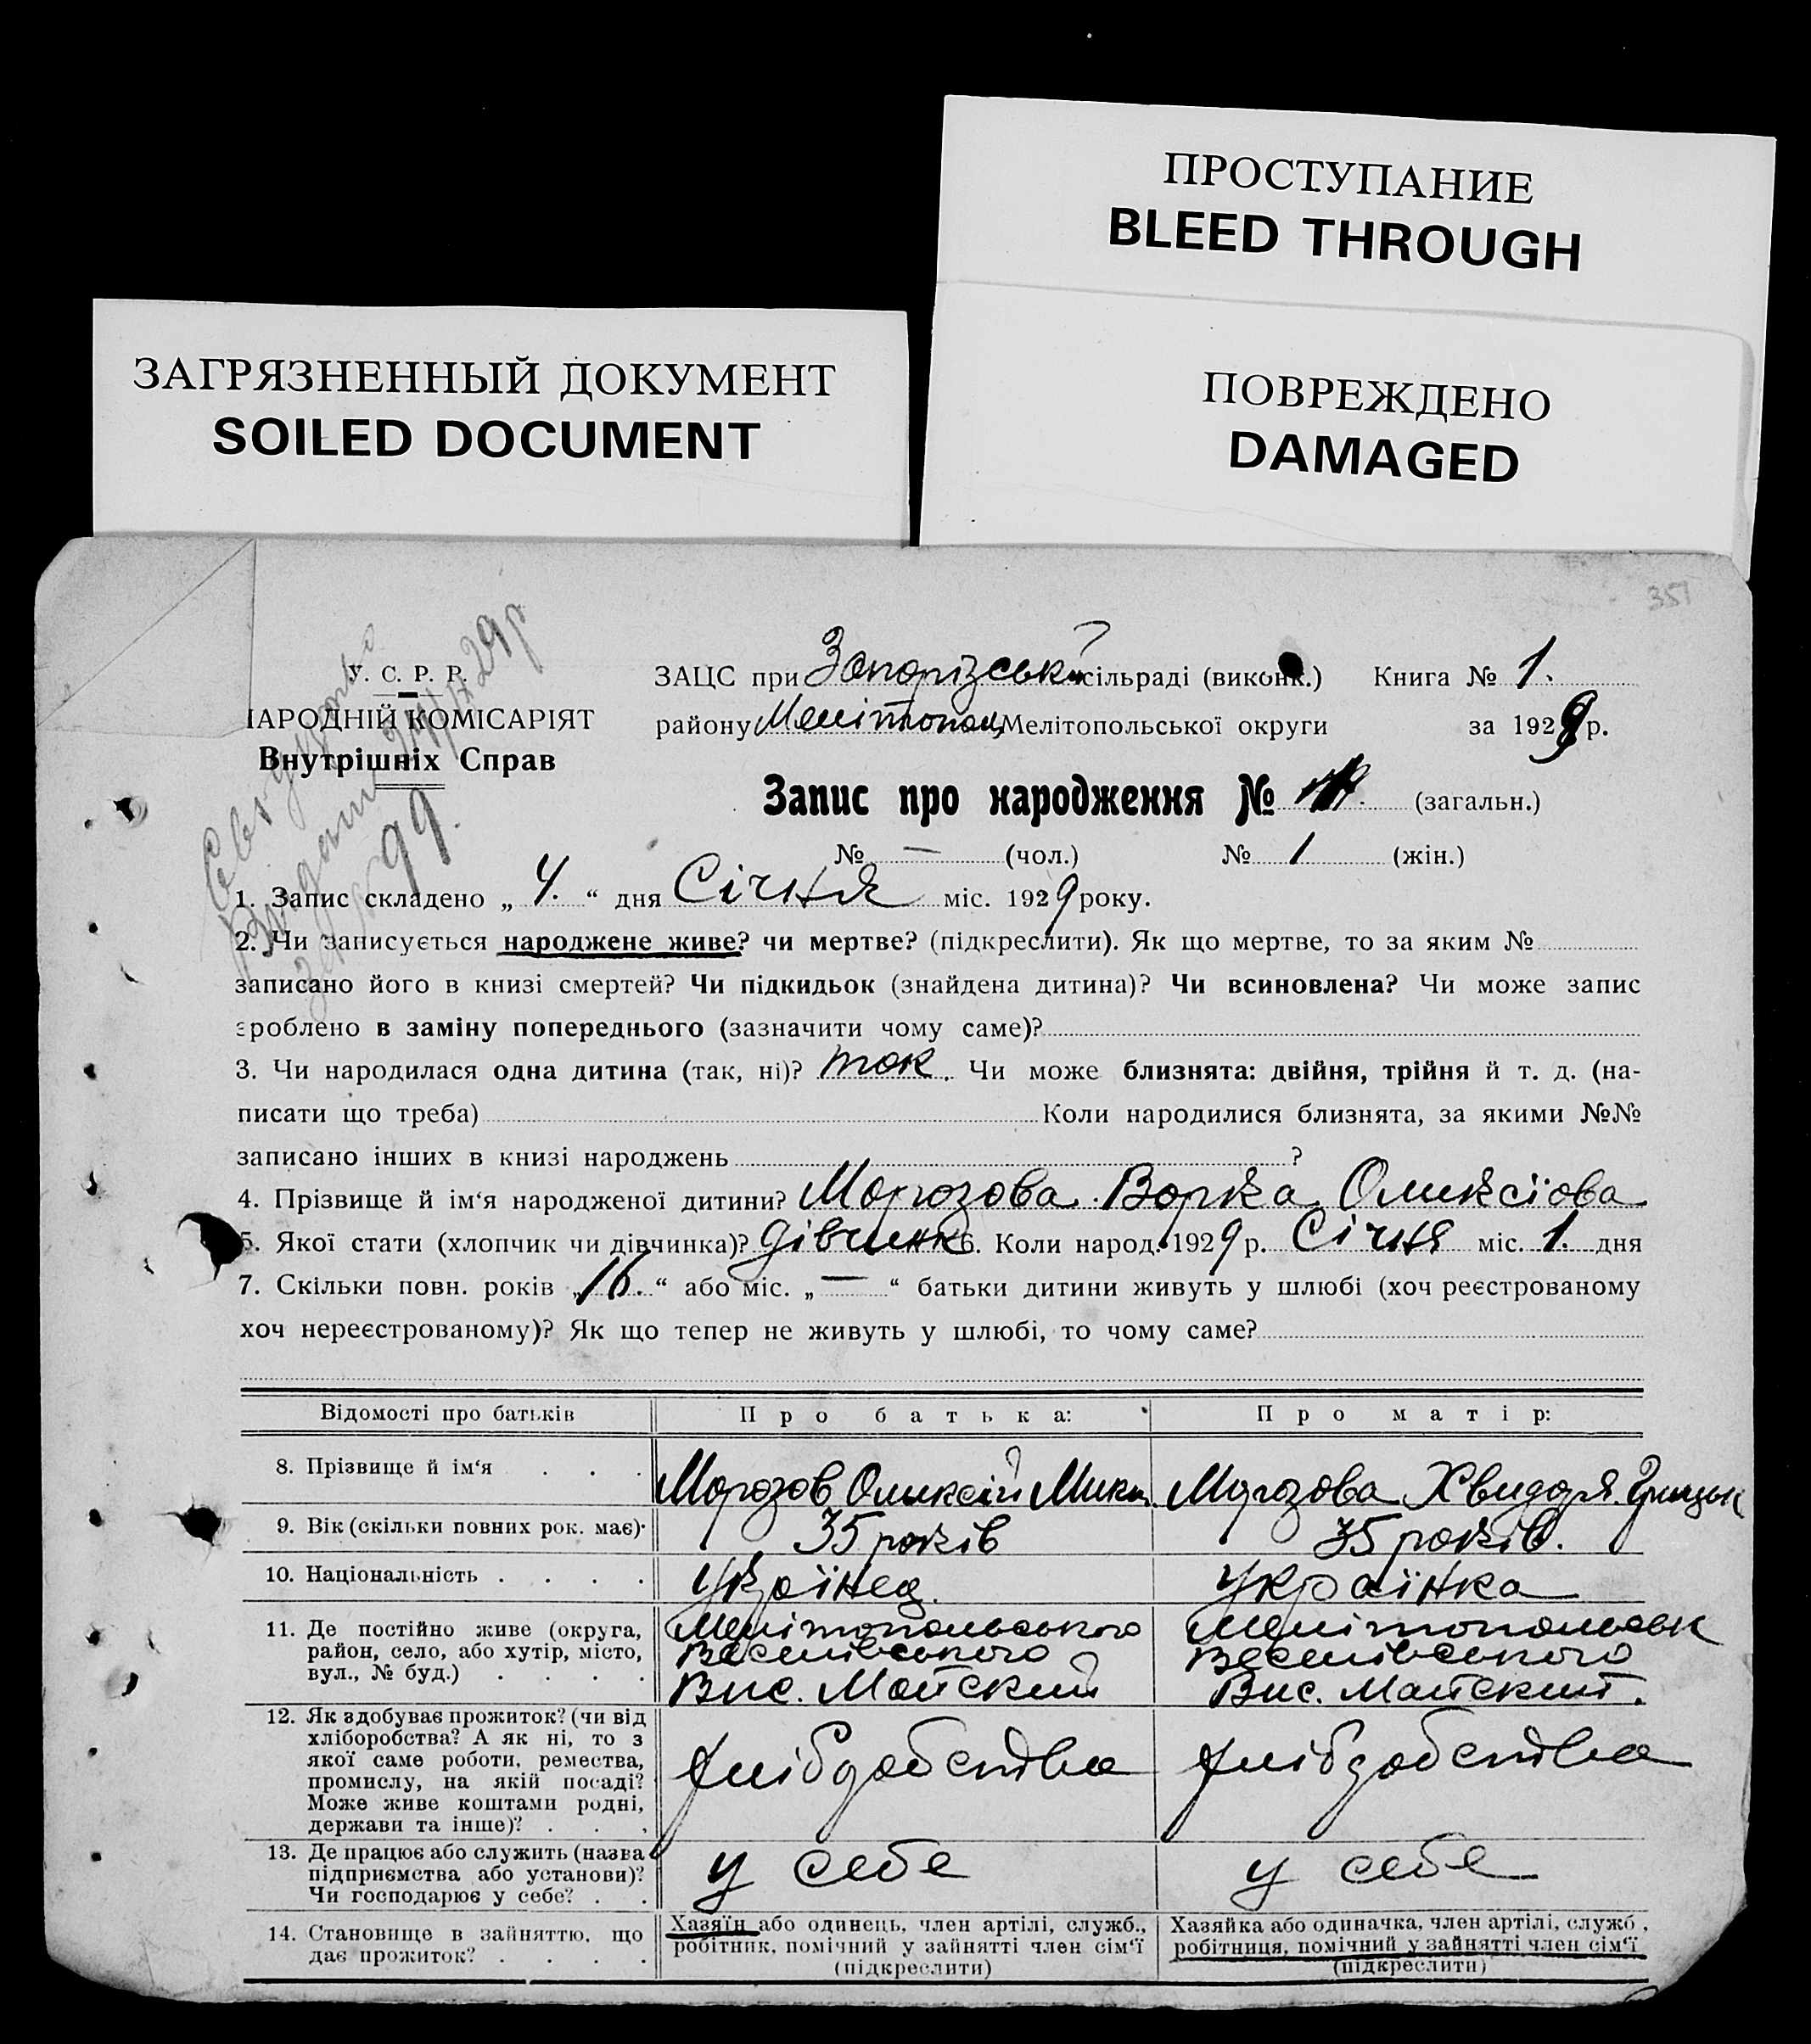 ПРОСТУПАНИЕ
BLEED THROUGH
ЗАГРЯЗНЕННЫЙ ДОКУМЕНТ
SOILED DOCUMENT
ПОВРЕЖДЕНО
DAMAGED
351
У. С. Р. Р.
НАРОДНІЙ КОМІСАРІЯТ
Внутрішніх Справ
99.
ЗАЦС при Запорізській сільраді (виконк.) Книга № 1.
району Мелітопол Мелітопольської округи за 1929 р.
Запис про народження № (загальн.)
№ — (чол.) № 1 (жін.)
1. Запис складено „ 4. “ дня Січня міс. 1929 року.
2. Чи записується народжене живе? чи мертве? (підкреслити). Як що мертве, то за яким №
записано його в книзі смертей? Чи підкидьок (знайдена дитина)? Чи всиновлена? Чи може запис
зроблено в заміну попереднього (зазначити чому саме)?
3. Чи народилася одна дитина (так, ні)? так. Чи може близнята: двійня, трійня й т. д. (на-
писати що треба) Коли народилися близнята, за якими №№
записано інших в книзі народжень ?
4. Прізвище й ім‘я народженої дитини? Морозова Ворка Оликсіова
5. Якої стати (хлопчик чи дівчинка)? дівчинк 6. Коли народ. 1929 р. Січня міс. 1. дня
7. Скільки повн. років „ 16. “ або міс. „ — “ батьки дитини живуть у шлюбі (хоч реєстрованому
хоч нереєстрованому)? Як що тепер не живуть у шлюбі, то чому саме?
Відомості про батьків Про батька: Про матір:
8. Прізвище й ім‘я . . . Морозов Оликсій Мики. Морозова Хвидоря Грицьк
9. Вік (скільки повних рок. має) 35 років 35 років.
10. Національність . . . . Українец. Українка
11. Де постійно живе (округа, Мелітопольського Мелітопольськ
район, село, або хутір, місто, Веселівського Веселівського
вул., № буд.) . . . . Вис. Майский Вис. Майский.
12. Як здобуває прожиток? (чи від
хліборобства? А як ні, то з
якої саме роботи, ремества, хлібдобства хлібдобства
промислу, на якій посаді?
Може живе коштами родні,
держави та інше)? . . .
13. Де працює або служить (назва у себе у себе
підприємства або установи)?
Чи господарює у себе? . .
14. Становище в зайняттю, що Хазяїн або одинець, член артілі, служб., Хазяйка або одиначка, член артілі, служб.,
дає прожиток? . . . . робітник, помічний у зайнятті член сім‘ї робітниця, помічний у зайнятті член сім‘ї
(підкреслити) (підкреслити)